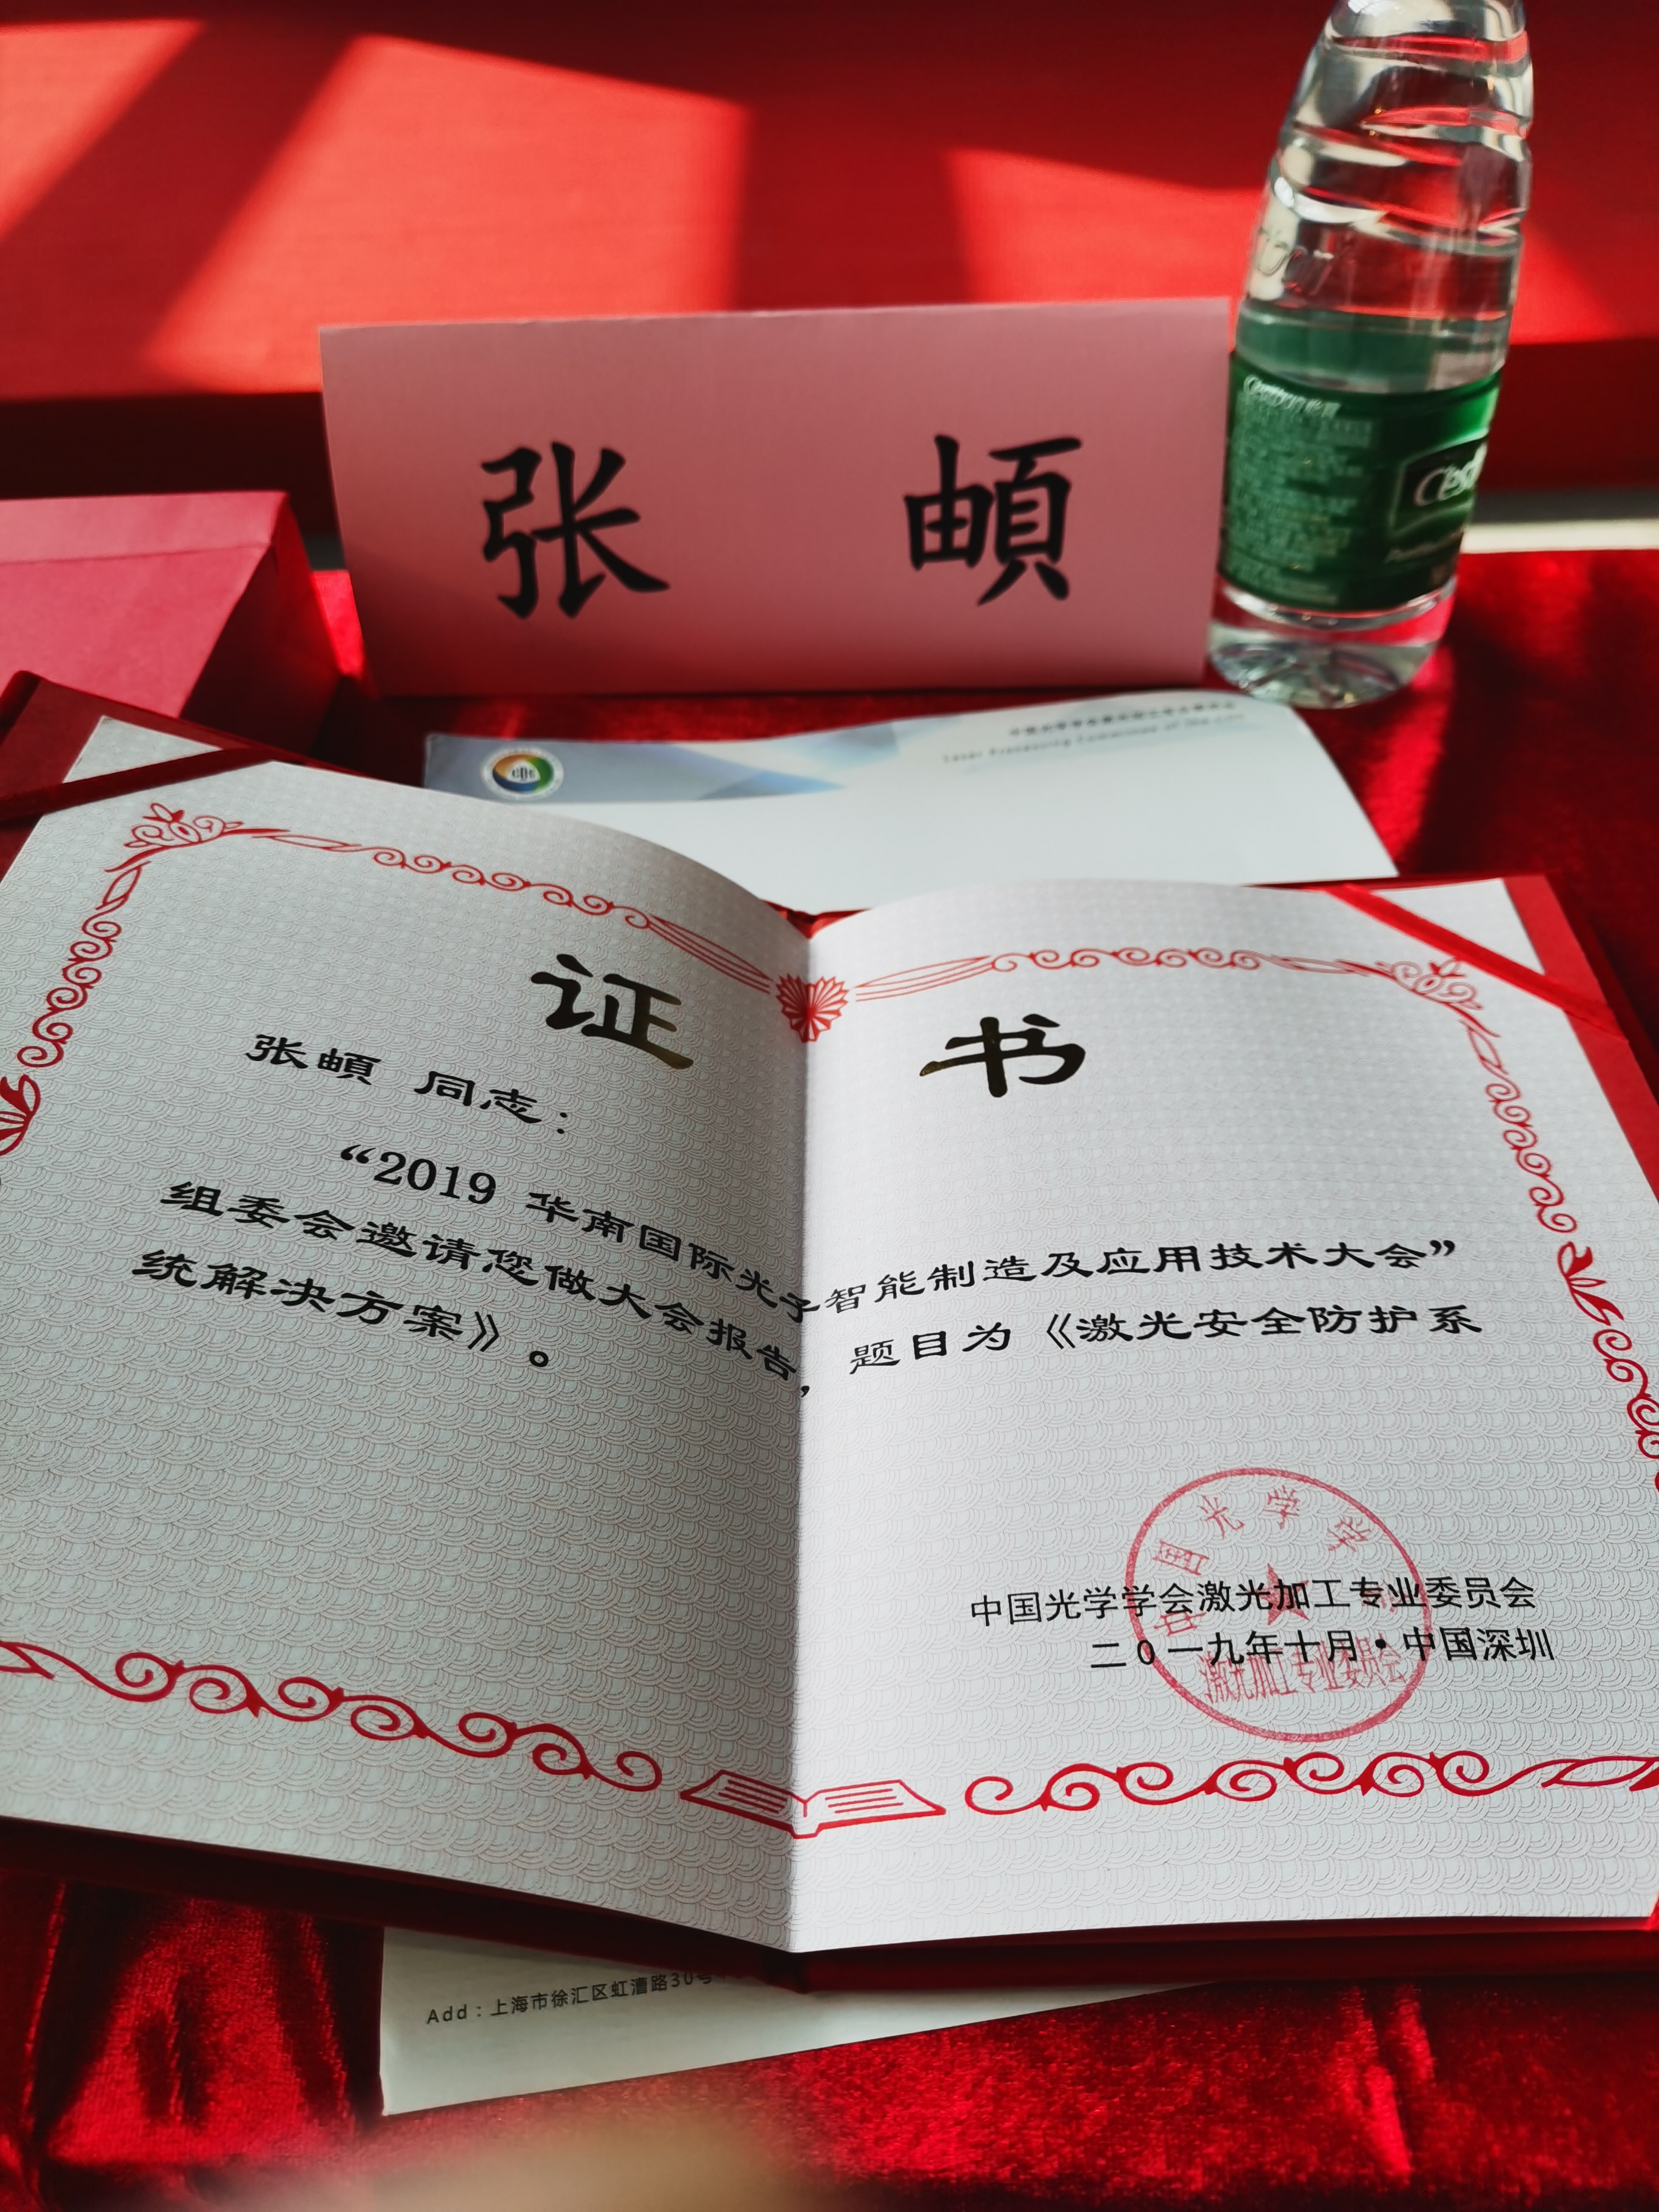 张 頔
C'est
Laser Processing Committee of
证 书
张頔 同志：
“2019 华南国际光子智能制造及应用技术大会”
组委会邀请您做大会报告，题目为《激光安全防护系
统解决方案》。
中国光学学会
中国光学学会激光加工专业委员会
二0一九年十月·中国深圳
激光加工专业委员会
Add：上海市徐汇区虹漕路30号